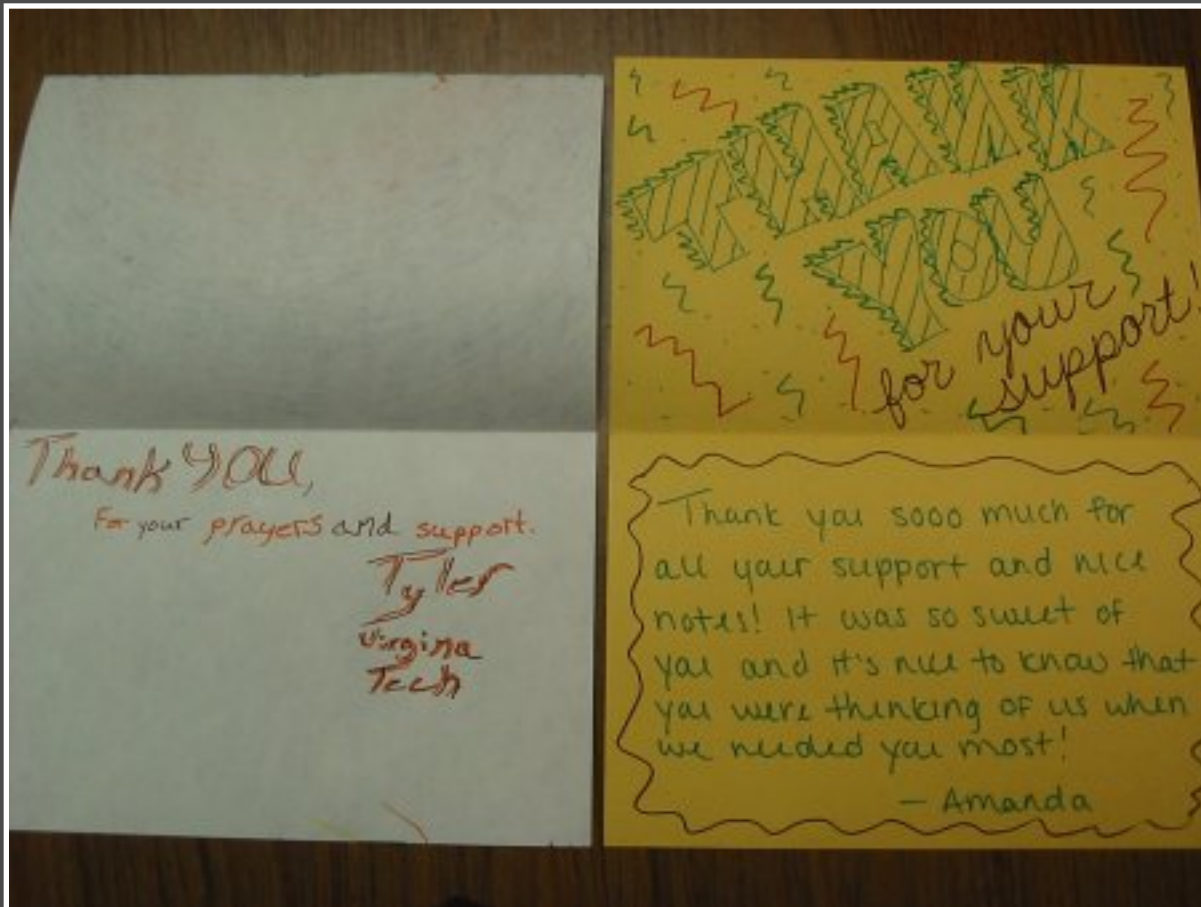 Thank YOU,
For your prayers and support.
Tyler
Virgina
Tech
THANK
YOU
for your
support!
Thank you sooo much for
all your support and nice
notes! It was so sweet of
you and it's nice to know that
you were thinking of us when
we needed you most!
- Amanda